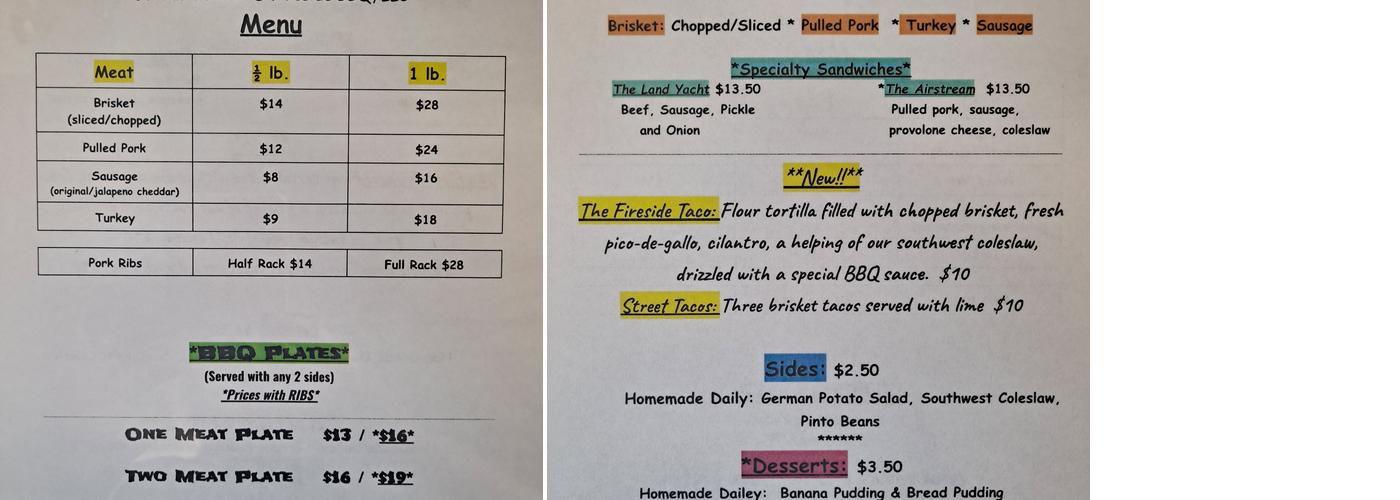 Menu
Meat ½ lb. 1 lb.
Brisket $14 $28
(sliced/chopped)
Pulled Pork $12 $24
Sausage $8 $16
(original/jalapeno cheddar)
Turkey $9 $18
Pork Ribs Half Rack $14 Full Rack $28
*BBQ PLATES*
(Served with any 2 sides)
*Prices with RIBS*
ONE MEAT PLATE $13 / *$16*
TWO MEAT PLATE $16 / *$19*
Brisket: Chopped/Sliced * Pulled Pork * Turkey * Sausage
*Specialty Sandwiches*
The Land Yacht $13.50 *The Airstream $13.50
Beef, Sausage, Pickle Pulled pork, sausage,
and Onion provolone cheese, coleslaw
**New!!**
The Fireside Taco: Flour tortilla filled with chopped brisket, fresh
pico-de-gallo, cilantro, a helping of our southwest coleslaw,
drizzled with a special BBQ sauce. $10
Street Tacos: Three brisket tacos served with lime $10
Sides: $2.50
Homemade Daily: German Potato Salad, Southwest Coleslaw,
Pinto Beans
******
*Desserts: $3.50
Homemade Dailey: Banana Pudding & Bread Pudding